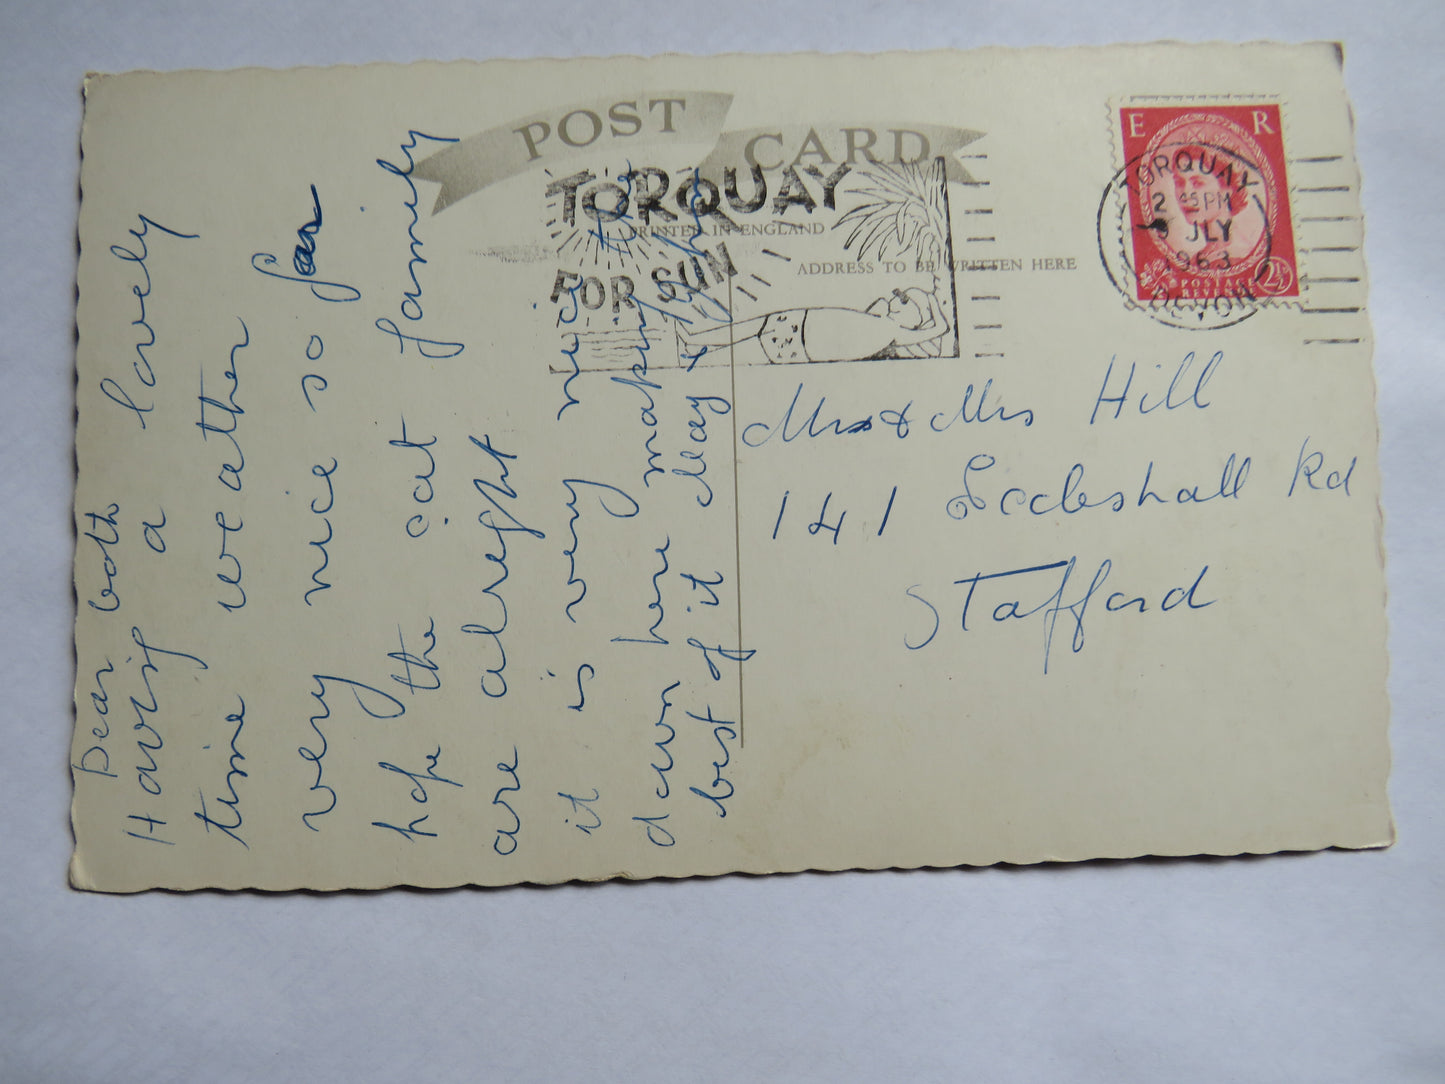 POST CARD
TORQUAY
FOR SUN
PRINTED IN ENGLAND
ADDRESS TO BE WRITTEN HERE
E R
POSTAGE
REVENUE
2½
TORQUAY
2 45 PM
JLY
1963
DEVON
Dear both
Having a lovely
time weather
very nice so far
hope the cat family
are alreght
it is very nice
down here making the
best of it May &
Mrs & Mrs Hill
141 Eccleshall Rd
Stafford